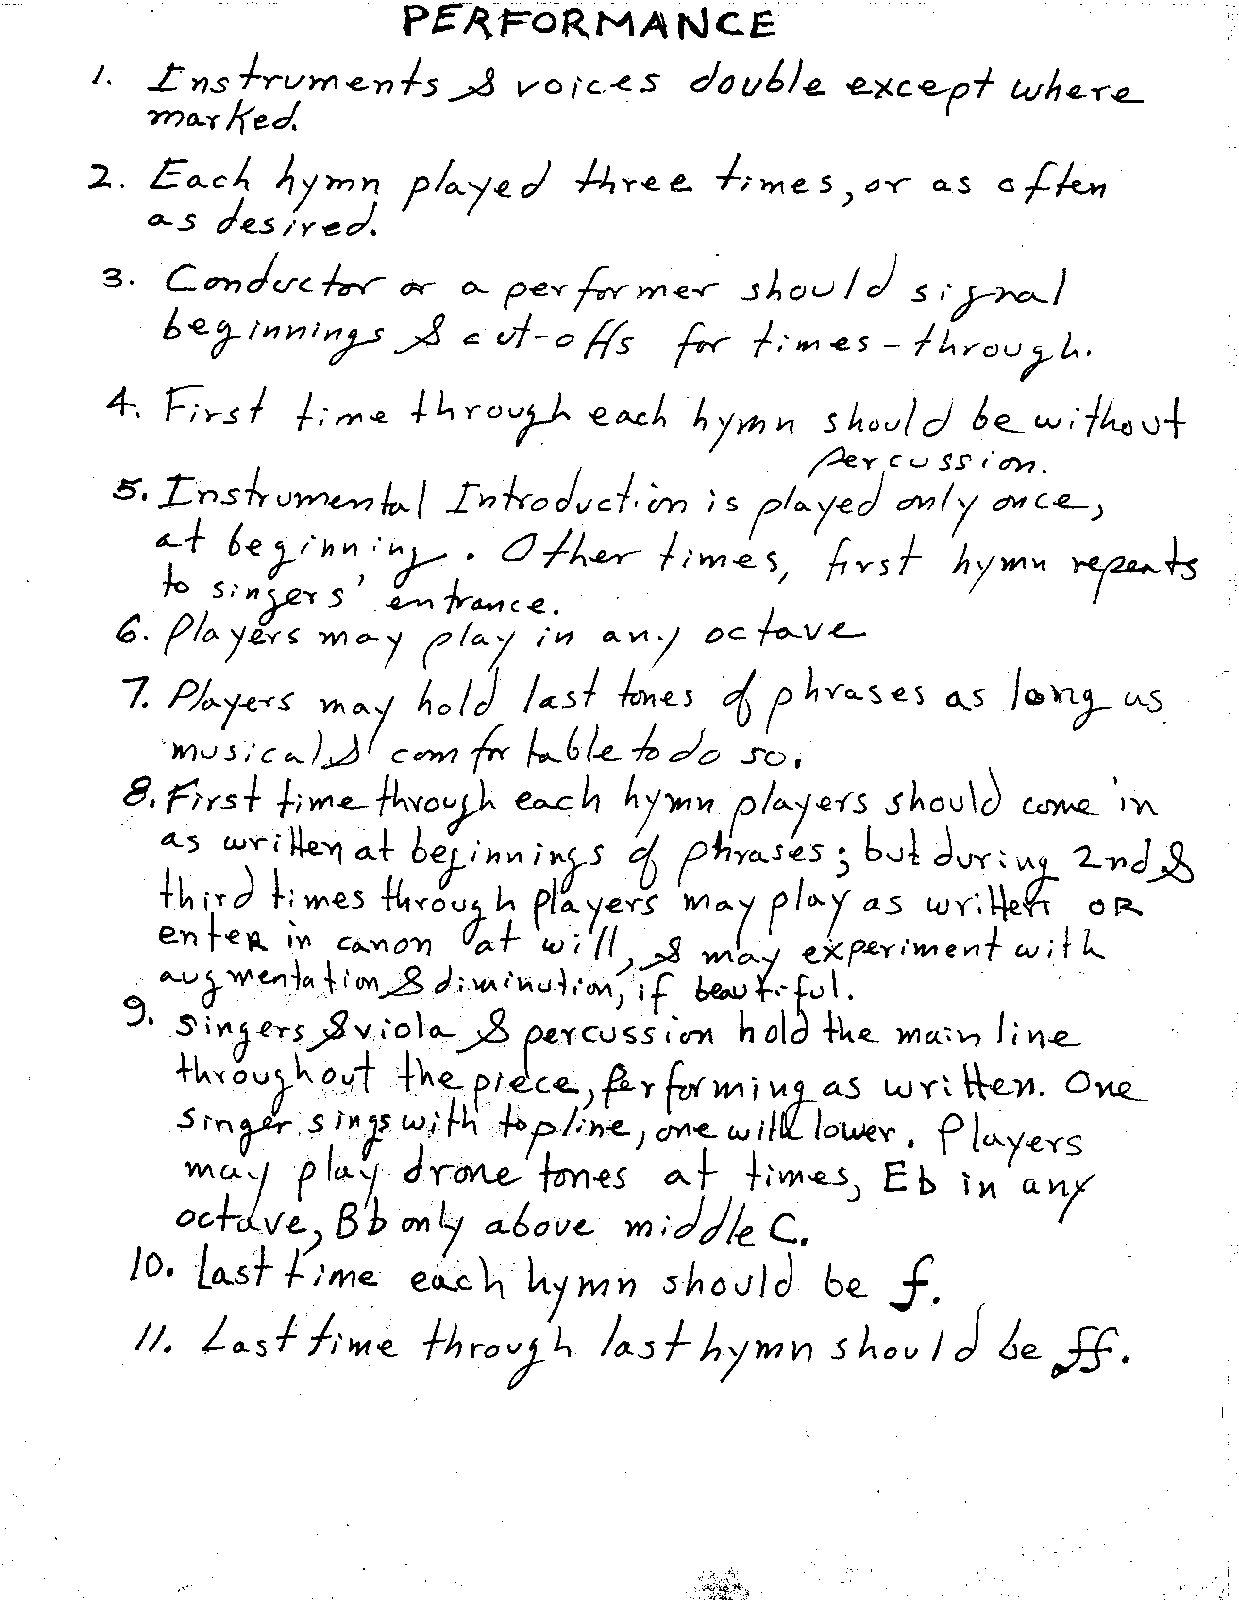 PERFORMANCE
1. Instruments & voices double except where
marked.
2. Each hymn played three times, or as often
as desired.
3. Conductor or a performer should signal
beginnings & cut-offs for times-through.
4. First time through each hymn should be without
percussion.
5. Instrumental Introduction is played only once,
at beginning. Other times, first hymn repeats
to singers' entrance.
6. Players may play in any octave
7. Players may hold last tones of phrases as long us
musical & comfortable to do so.
8. First time through each hymn players should come in
as written at beginnings of phrases; but during 2nd &
third times through players may play as written OR
enter in canon at will, & may experiment with
augmentation & diminution, if beautiful.
9. Singers & viola & percussion hold the main line
throughout the piece, performing as written. One
singer sings with top line, one with lower. Players
may play drone tones at times, Eb in any
octave, Bb only above middle C.
10. Last time each hymn should be f.
11. Last time through last hymn should be ff.